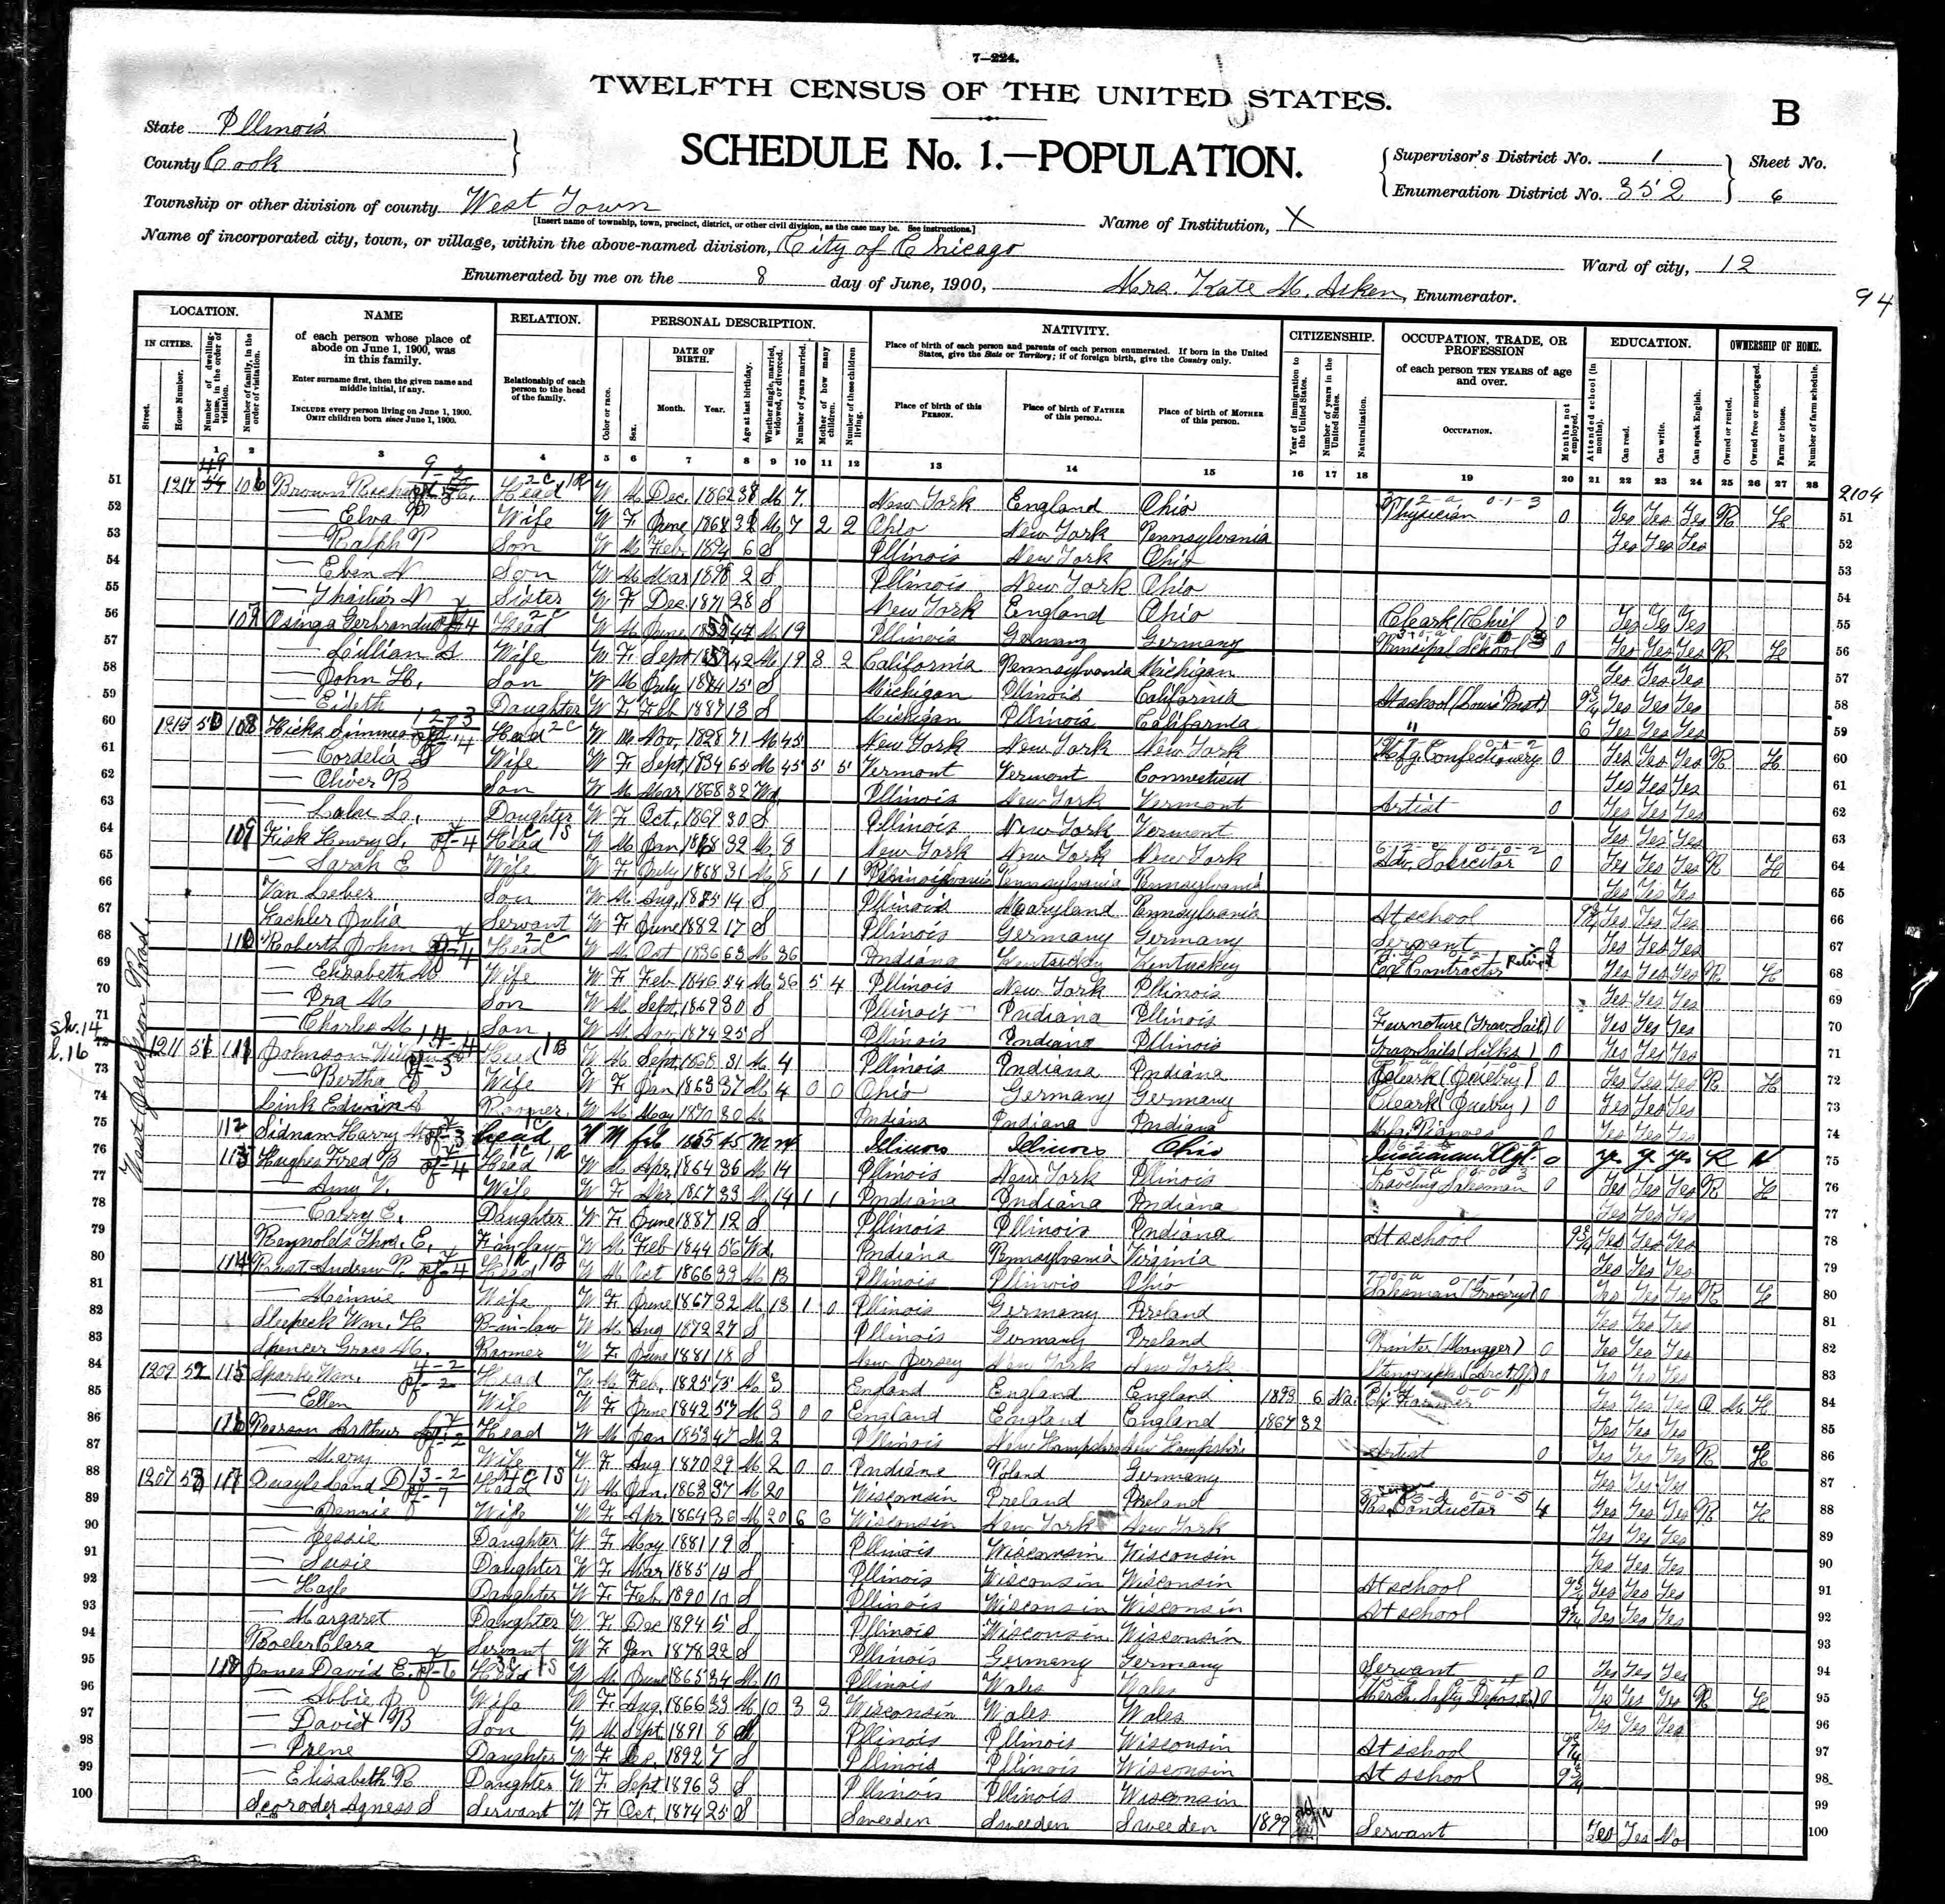 7—224.
TWELFTH CENSUS OF THE UNITED STATES.
B
State Illinois
County Cook
SCHEDULE No. 1.—POPULATION.
Supervisor's District No. 1
Sheet No.
Enumeration District No. 352
6
Township or other division of county West Town
[Insert name of township, town, precinct, district, or other civil division, as the case may be. See instructions.]
Name of Institution, X
Name of incorporated city, town, or village, within the above-named division, City of Chicago
Ward of city, 12
Enumerated by me on the 8 day of June, 1900, Mrs. Kate M. Aiken, Enumerator.
94
LOCATION. NAME RELATION. PERSONAL DESCRIPTION. NATIVITY. CITIZENSHIP. OCCUPATION, TRADE, OR PROFESSION EDUCATION. OWNERSHIP OF HOME.
IN CITIES. Street. House Number. Number of dwelling-house, in the order of visitation. Number of family, in the order of visitation.
of each person whose place of abode on June 1, 1900, was in this family.
Enter surname first, then the given name and middle initial, if any.
INCLUDE every person living on June 1, 1900. OMIT children born since June 1, 1900.
Relationship of each person to the head of the family.
Color or race. Sex. DATE OF BIRTH. Month. Year. Age at last birthday. Whether single, married, widowed, or divorced. Number of years married. Mother of how many children. Number of these children living.
Place of birth of each person and parents of each person enumerated. If born in the United States, give the State or Territory; if of foreign birth, give the Country only.
Place of birth of this PERSON. Place of birth of FATHER of this person. Place of birth of MOTHER of this person.
Year of immigration to the United States. Number of years in the United States. Naturalization.
of each person TEN YEARS of age and over. OCCUPATION. Months not employed.
Attended school (in months). Can read. Can write. Can speak English.
Owned or rented. Owned free or mortgaged. Farm or house. Number of farm schedule.
1 2 3 4 5 6 7 8 9 10 11 12 13 14 15 16 17 18 19 20 21 22 23 24 25 26 27 28
West Jackson Boul.
2104
51 1217 106 Brown Head W M Dec. 1862 M 7 New York England Ohio Physician 0 Yes Yes Yes R H 51
52 — Elva P Wife W F June 1868 M 7 2 2 Ohio New York Pennsylvania Yes Yes Yes 52
53 — Ralph P Son W M Feb 1894 6 S Illinois New York Ohio 53
54 — Eben N Son W M Mar 1898 2 S Illinois New York Ohio 54
55 Sister W F Dec 1871 28 S New York England Ohio Cleark (Chief) 0 Yes Yes Yes 55
56 107 Head W M June M 19 Illinois Germany Germany Principal School 0 Yes Yes Yes R H 56
57 — Lillian A Wife W F Sept 42 M 19 3 2 California Pennsylvania Michigan Yes Yes Yes 57
58 — John H. Son W M July 1884 15 S Michigan Illinois California At school 9¾ Yes Yes Yes 58
59 — Edith Daughter W F Feb 1887 13 S Michigan Illinois California " 6 Yes Yes Yes 59
60 1215 50 108 Hicks Head W M Nov. 1828 71 M 45 New York New York New York Mfg. Confectionery 0 Yes Yes Yes R H 60
61 — Cordelia S Wife W F Sept. 1834 65 M 45 5 5 Vermont Vermont Connecticut Yes Yes Yes 61
62 — Oliver B Son W M Mar 1868 32 Wd. Illinois New York Vermont Artist 0 Yes Yes Yes 62
63 Daughter W F Oct. 1869 30 S Illinois New York Vermont Yes Yes Yes 63
64 109 Fisk Henry S. Head W M Jan 1868 32 M 8 New York New York New York Adv. Solicitor 0 Yes Yes Yes R H 64
65 — Sarah E Wife W F July 1868 31 M 8 1 1 Pennsylvania Pennsylvania Yes Yes Yes 65
66 Van Son W M Aug. 1885 14 S Illinois Maryland Pennsylvania At school 9¾ Yes Yes Yes 66
67 Julia Servant W F June 1882 17 S Illinois Germany Germany Servant Yes Yes Yes 67
68 110 Roberts John Head W M Oct 1836 63 M 36 Indiana Kentucky Kentucky Contractor Retired Yes Yes Yes R H 68
69 — Elizabeth M Wife W F Feb 1846 54 M 36 5 4 Illinois New York Illinois Yes Yes Yes 69
70 — Ira M Son W M Sept. 1869 30 S Illinois Indiana Illinois Furnoture (Trav Sails) 0 Yes Yes Yes 70
71 — Charles M Son W M Nov. 1874 25 S Illinois Indiana Illinois Trav Sails (Silks) 0 Yes Yes Yes 71
72 1211 51 111 Johnson Head W M Sept. 1868 31 M 4 Illinois Indiana Indiana Cleark 0 Yes Yes Yes R H 72
73 — Bertha Wife W F Jan 1863 37 M 4 0 0 Ohio Germany Germany Cleark 0 Yes Yes Yes 73
74 Link Edwin S Roomer W M May 1870 30 M Indiana Indiana Indiana 0 Yes Yes Yes 74
75 112 Sidnam Harry Head W M Feb 1855 45 M Illinois Illinois Ohio 0 yes yes yes R H 75
76 113 Hughes Fred B Head W M Apr. 1864 36 M 14 Illinois New York Illinois Traveling Salesman 0 Yes Yes Yes R H 76
77 — Amy V. Wife W F Apr 1867 33 M 14 1 1 Indiana Indiana Indiana Yes Yes Yes 77
78 — Carry E. Daughter W F June 1887 12 S Illinois Illinois Indiana At school 9¾ Yes Yes Yes 78
79 Reynolds Thos. E. F-in-law W M Feb 1844 56 Wd. Indiana Pennsylvania Virginia Yes Yes Yes 79
80 114 Andrew P. Head W M Oct 1866 33 M 13 Illinois Illinois Ohio Salesman (Grocerys) 0 Yes Yes Yes R H 80
81 — Minnie Wife W F June 1867 32 M 13 1 0 Illinois Germany Ireland Yes Yes Yes 81
82 Sleepeck Wm. H B-in-law W M Aug 1872 27 S Illinois Germany Ireland Printer 0 Yes Yes Yes 82
83 Spencer Grace M. Roomer W F June 1881 18 S New Jersey New York New York 0 Yes Yes Yes 83
84 1209 52 115 Sparks Wm. Head W M Feb. 1825 75 M 3 England England England 1893 6 Na. Farmer Yes Yes Yes O M H 84
85 — Ellen Wife W F June 1842 57 M 3 0 0 England England England 1867 32 Yes Yes Yes 85
86 116 Pearson Arthur Head W M Jan 1853 47 M 2 Illinois New Hampshire New Hampshire Artist 0 Yes Yes Yes R H 86
87 — Mary Wife W F Aug 1870 29 M 2 0 0 Indiana Poland Germany Yes Yes Yes 87
88 1207 53 117 Quayle Head W M Jan. 1863 37 M 20 Wisconsin Ireland Ireland Conductor 4 Yes Yes Yes R H 88
89 — Jennie Wife W F Apr 1864 36 M 20 6 6 Wisconsin New York New York Yes Yes Yes 89
90 — Jessie Daughter W F May 1881 19 S Illinois Wisconsin Wisconsin Yes Yes Yes 90
91 — Susie Daughter W F Mar 1885 S Illinois Wisconsin Wisconsin At school 9¾ Yes Yes Yes 91
92 — Hazle Daughter W F Feb 1890 10 S Illinois Wisconsin Wisconsin At school 9¾ Yes Yes Yes 92
93 — Margaret Daughter W F Dec 1894 5 S Illinois Wisconsin Wisconsin 93
94 Boeler Clara Servant W F Jan 1878 22 S Illinois Germany Germany Servant 0 Yes Yes Yes 94
95 118 Jones David E. Head W M June 1865 34 M 10 Illinois Wales Wales 0 Yes Yes Yes R H 95
96 — Abbie J Wife W F Aug. 1866 33 M 10 3 3 Wisconsin Wales Wales Yes Yes Yes 96
97 — David B Son W M Sept. 1891 8 S Illinois Illinois Wisconsin At school 9¾ 97
98 — Irene Daughter W F 1892 7 S Illinois Illinois Wisconsin At school 9¾ 98
99 — Elisabeth R Daughter W F Sept 1896 3 S Illinois Illinois Wisconsin 99
100 Scoroder Agness S Servant W F Oct. 1874 25 S Sweeden Sweeden Sweeden 1899 Servant Yes Yes No 100